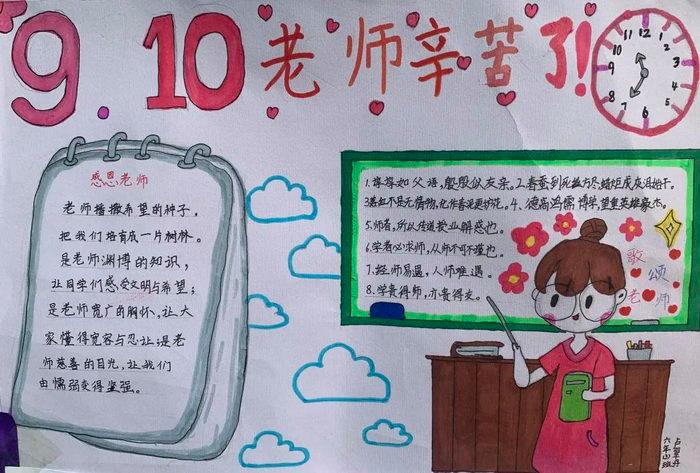 9.10老师辛苦了!
12
1
2
3
4
5
6
7
8
9
10
11
感恩老师
老师播撒希望的种子,
把我们培育成一片树林。
是老师渊博的知识,
让同学们感受文明与希望;
是老师宽广的胸怀,让大
家懂得宽容与忍让;是老
师慈善的目光,让我们
由懦弱变得坚强。
1.谆谆如父语,殷殷似友亲。2.春蚕到死丝方尽,蜡炬成灰泪始干。
3.落红不是无情物,化作春泥更护花。4、德高鸿儒博学,望重英雄豪杰。
5.师者,所以传道授业解惑也。
6.学者必求师,从师不可不谨也。
7.经师易遇,人师难遇。
8.学贵得师,亦贵得友。
歌
颂
老师
六年
班